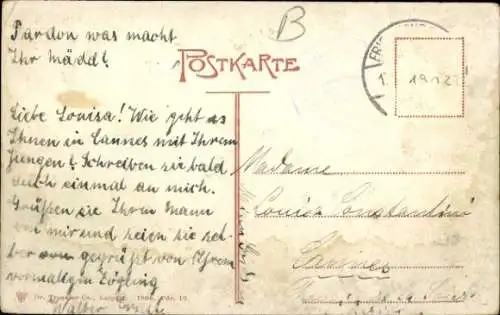 Pardon was macht
Ihr Mädd!
B
POSTKARTE
Liebe Louisa! Wie geht es
Ihnen in Cannes mit Ihrem
Jungen? Schreiben sie bald
auch einmal an mich.
Grüßen sie Ihren Mann
von mir und seien sie sel-
ber von gegrüßt von Ihrem
vormaligen Zögling
Walter
Madame
Louisa Constantini
Cannes
Dr. Trenkler Co., Leipzig. 1906.